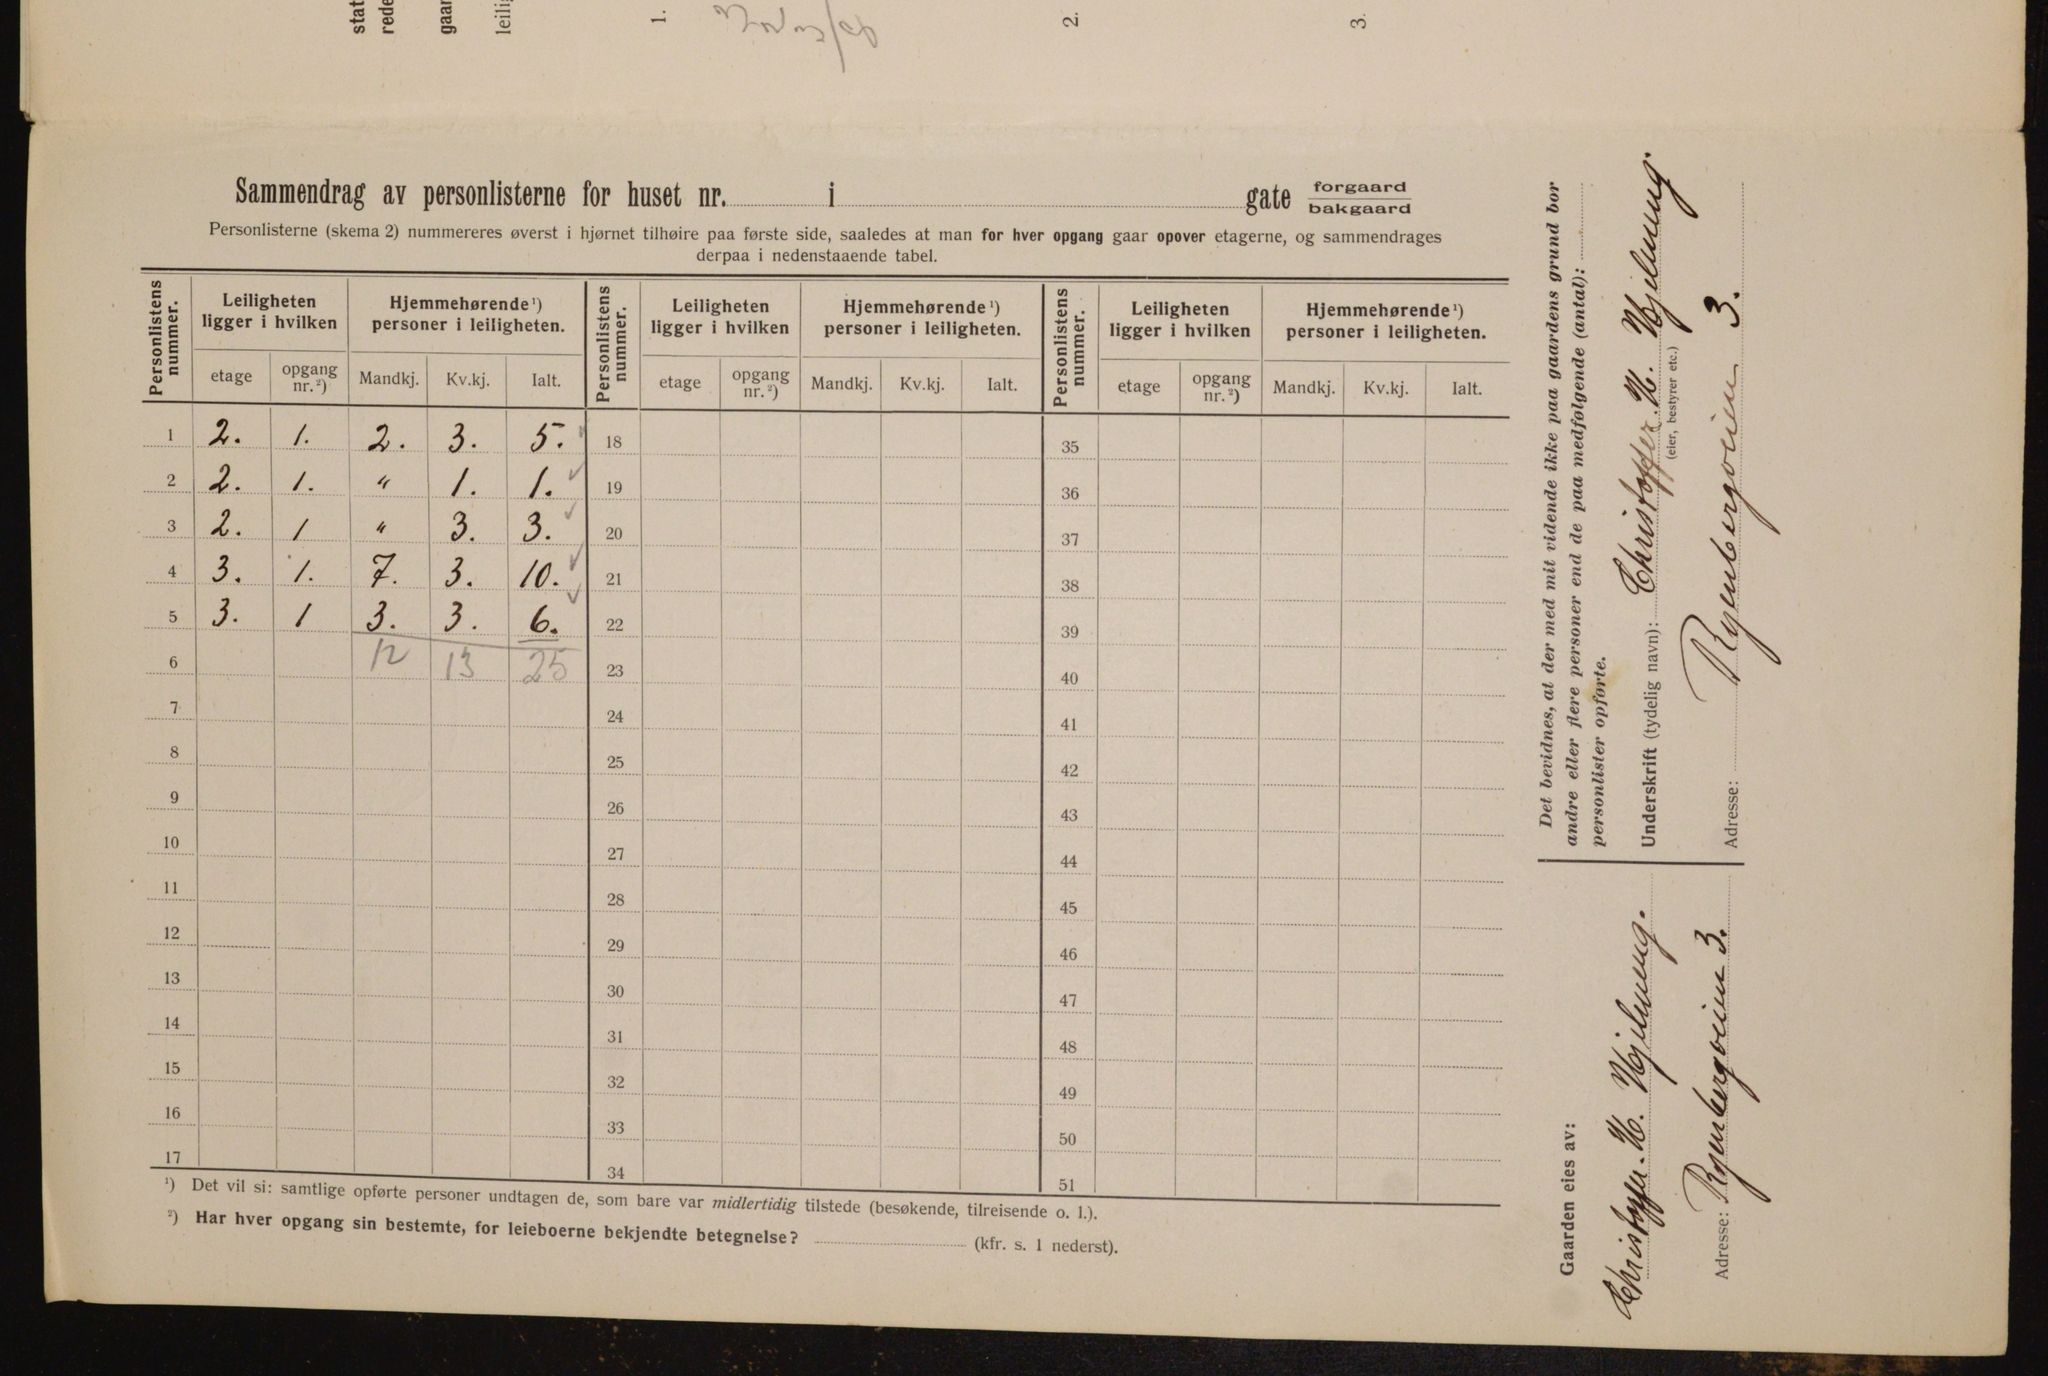 stat
rede
gaar
leilig
1.
2.
3.
Sammendrag av personlisterne for huset nr. i gate forgaard
bakgaard
Personlisterne (skema 2) nummereres øverst i hjørnet tilhøire paa første side, saaledes at man for hver opgang gaar opover etagerne, og sammendrages
derpaa i nedenstaaende tabel.
Personlistens nummer. Leiligheten ligger i hvilken Hjemmehørende ¹) personer i leiligheten. Personlistens nummer. Leiligheten ligger i hvilken Hjemmehørende ¹) personer i leiligheten. Personlistens nummer. Leiligheten ligger i hvilken Hjemmehørende ¹) personer i leiligheten.
etage opgang nr. ²) Mandkj. Kv.kj. Ialt. etage opgang nr. ²) Mandkj. Kv.kj. Ialt. etage opgang nr. ²) Mandkj. Kv.kj. Ialt.
1 2. 1. 2. 3. 5. ✓ 18 35
2 2. 1. " 1. 1. ✓ 19 36
3 2. 1 " 3. 3. ✓ 20 37
4 3. 1. 7. 3. 10. ✓ 21 38
5 3. 1 3. 3. 6. ✓ 22 39
6 12 13 25 23 40
7 24 41
8 25 42
9 26 43
10 27 44
11 28 45
12 29 46
13 30 47
14 31 48
15 32 49
16 33 50
17 34 51
¹) Det vil si: samtlige opførte personer undtagen de, som bare var midlertidig tilstede (besøkende, tilreisende o. l.).
²) Har hver opgang sin bestemte, for leieboerne bekjendte betegnelse? (kfr. s. 1 nederst).
Det bevidnes, at der med mit vidende ikke paa gaardens grund bor
andre eller flere personer end de paa medfølgende (antal):
personlister opførte.
Underskrift (tydelig navn): Christoffer H. Hjelmung.
(eier, bestyrer etc.)
Adresse: Ryenbergveien 3.
Gaarden eies av:
Christoffer H. Hjelmung.
Adresse: Ryenbergveien 3.